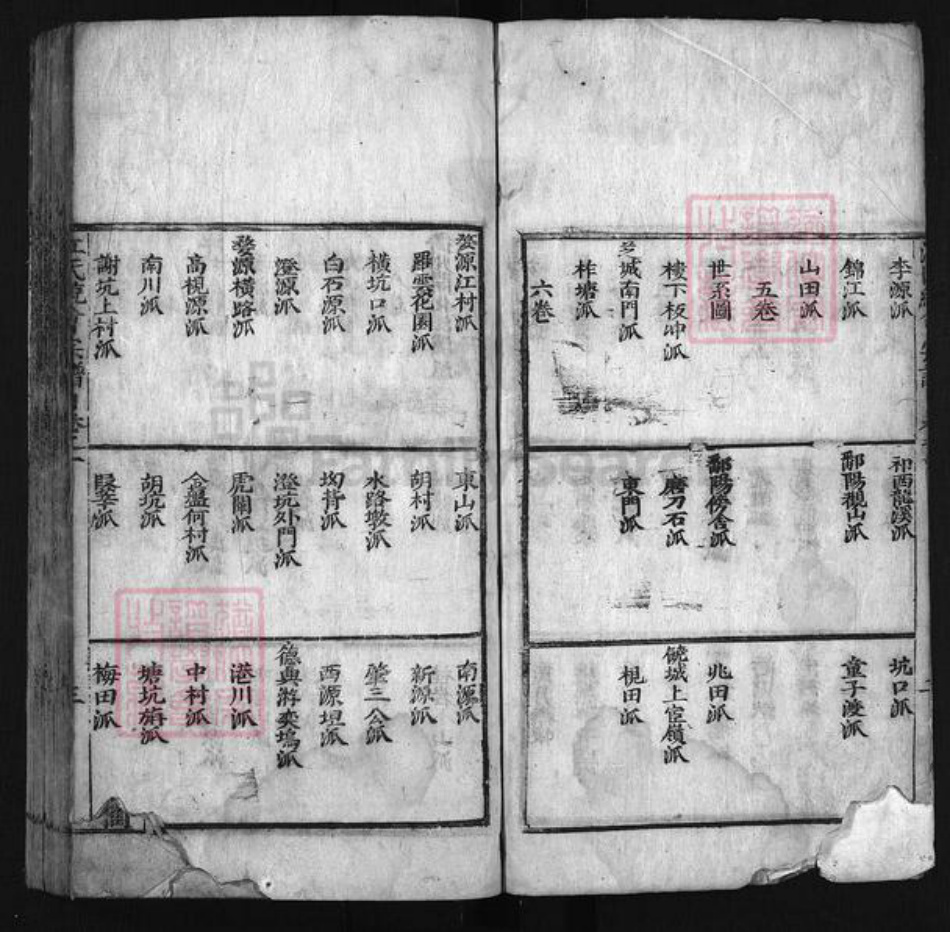 李源派
錦江派
山田派
五卷
世系圖
棲下板冲派
芝城南門派
柞塘派
六卷
祁西龍溪派
鄱陽觀山派
鄱陽傍舍派
磨刀石派
東門派
坑口派
童子渡派
兆田派
饒城上宦嶺派
梘田派
婺源江村派
羅雲花園派
橫坑口派
白石源派
澄源派
婺源橫路派
高梘源派
南川派
謝坑上村派
東山派
胡村派
水路墩派
坳背派
澄坑外門派
虎關派
金盤何村派
胡坑派
南源派
新源派
肇三公派
西源坦派
德興游奕塢派
港川派
中村派
塘坑旃派
梅田派
三